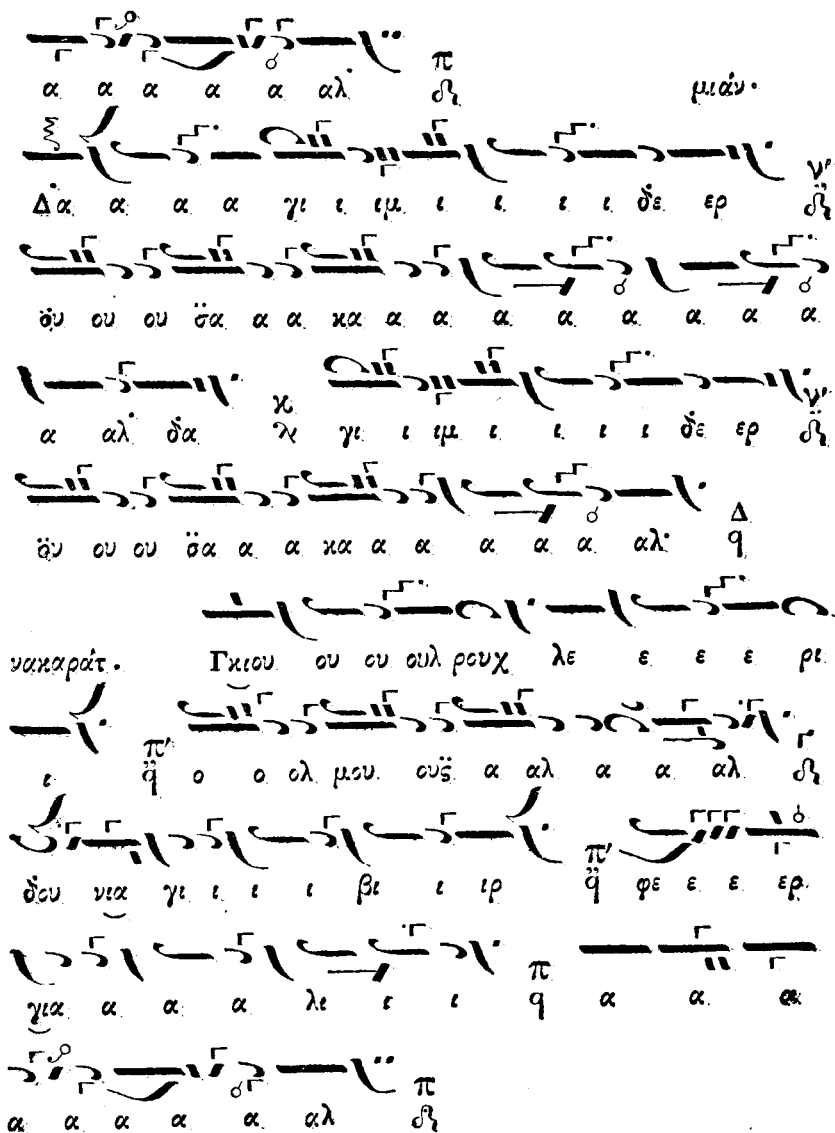 α α α α α αλ̇ π μιάν.
Δ̇α α α α γι ι ιμ ι ι ι ι δ̇ε ερ ν'
σ̈υ ου ου σ̈α α α κα α α α α α α α α
α αλ̇ δ̇α κ λ γι ι ιμ ι ι ι ι δ̇ε ερ ν'
σ̈υ ου ου σ̈α α α κα α α α α α αλ̇ Δ q
νακαράτ. Γκιου ου ου ουλ ρουχ λε ε ε ε ρι
ι π' q̈ ο ο ολ μου ουξ̈ α αλ α α αλ Γ
δ̇ου νια γι ι ι ι βι ι ιρ π' q̈ φε ε ε ερ
για α α α λι ι ι π q α α α
α α α α α αλ π